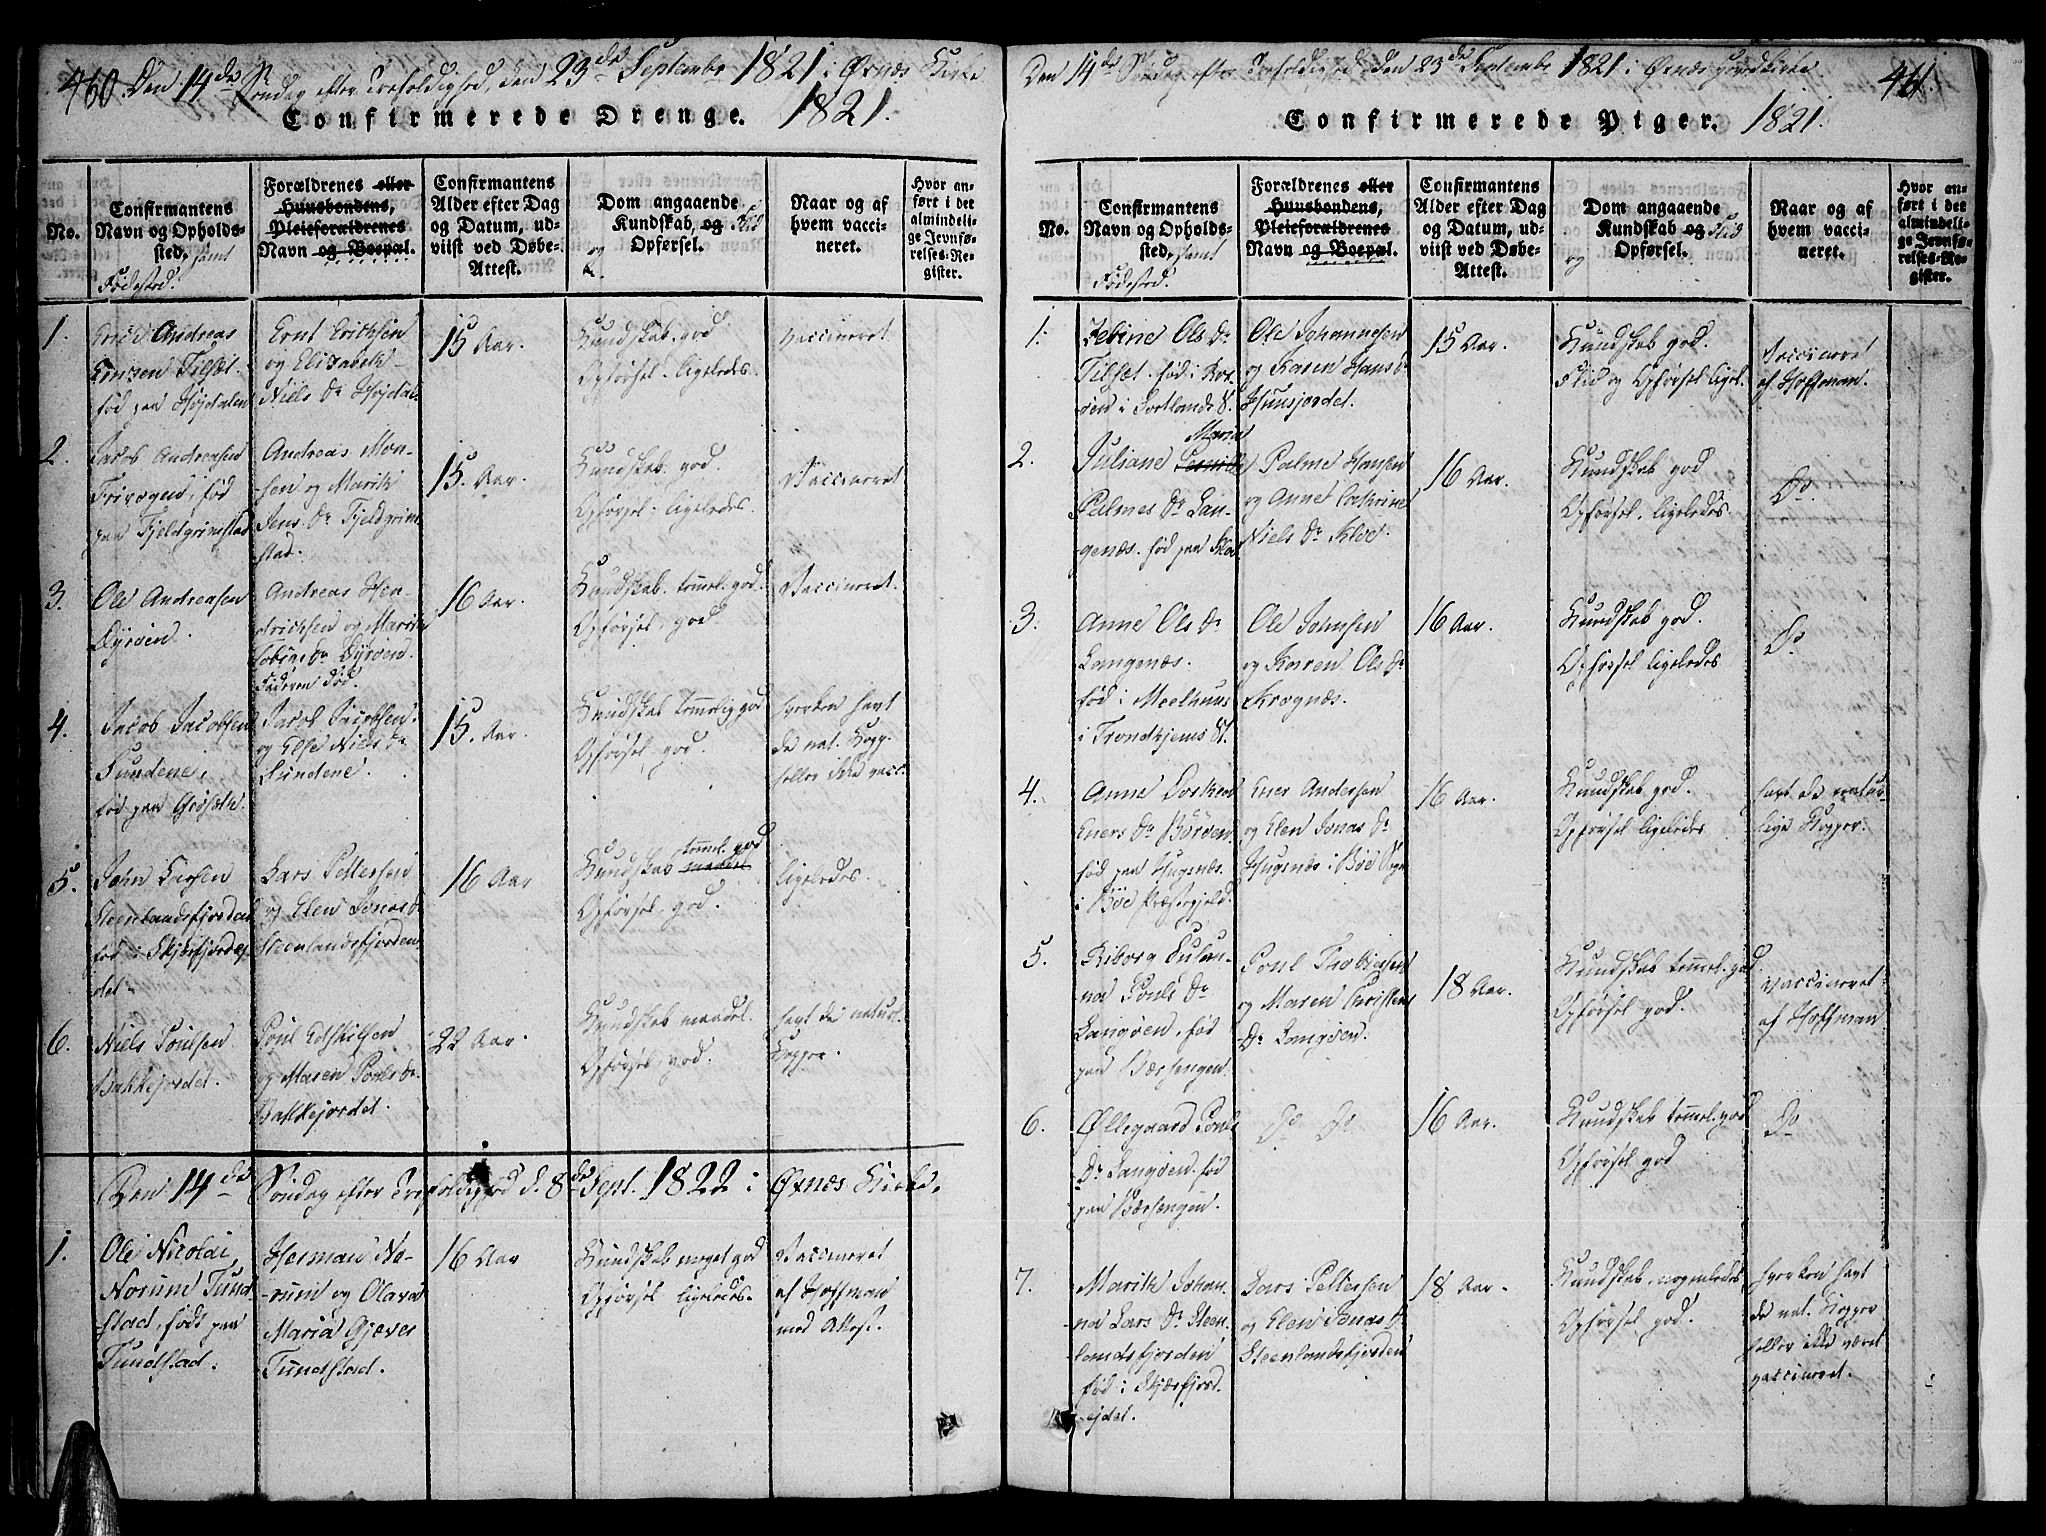 460. Den 14de Søndag efter Trefoldighed, den 23de Septembr 1821 i Øxnæs Kirke
Confirmerede Drenge. 1821.
No.
Confirmantens
Navn og Opholds-
sted. samt
Fødested.
Forældrenes eller
Huusbondens,
Pleieforældrenes
Navn og Boepæl.
Confirmantens
Alder efter Dag
og Datum, ud-
viist ved Døbe-
Attest.
Dom angaaende
Kundskab, og Flid
og Opførsel.
Naar og af
hvem vacci-
neret.
Hvor an-
ført i det
almindeli-
ge Jevnfø-
relses-Re-
gister.
1.
Andreas
Tilsæt.
fød paa Højdalen
Ernt Erichsen
og Elisabeth
Niels Dr Højdal
15 Aar.
Kundskab. god
Opførsel. ligeledes.
Vaccineret
2.
Jacob Andreasen
fød
paa Fjeldgrimstad
Andreas Mon-
sen og Marith
Jens. Dr Fjeldgrim
stad.
15. Aar.
Kundskab. god.
Opførsel. ligeledes.
Vaccineret
3.
Ole Andreasen
Dyrøen.
Andreas Hen-
drichsen og Marith
Dr Dyrøen.
Faderen død.
16 Aar.
Kundskab. temmel. god.
Opførsel, god.
Vaccineret.
4.
Jacob Jacobsen
Sundene,
fød paa
Jacob Jacobsen.
og Else Niels Dr
Sundene.
15. Aar.
Kundskab temmelig god
Opførsel, god.
hverken havt
de nat. Kopp.
heller ikke vacc.
5.
John Larsen
Steenlandsfjorden
fød i Skjærfjordej
det.
Lars Pettersen
og Elen Jonas Dr
Steenlandsfjorden
16 Aar
Kundskab temmel. god
Opførsel, god.
ligeledes.
6.
Niels Poulsen
Bakkejordet.
Poul Edskilsen
og Maren Pouls Dr.
Bakkejordet.
22 Aar.
Kundskab maadel.
Opførsel, god.
havt de naturl.
Kopper.
Den 14de Søndag efter Trefoldighed d. 8de Sept. 1822 i Øxnæs Kirke.
1.
Ole Nicolai
Norum Tund-
stad, født paa
Tundstad.
Herman No-
rum og Olava
Maria Gjæver
Tundstad.
16 Aar
Kundskab meget god
Opførsel ligeledes.
Vaccineret
af Hoffman
med Attest.
Den 14de Søndag efter Trefoldighed, den 23de Septembr 1821 i Øxnæs Hovedkirke. 461.
Confirmerede Piger. 1821.
No.
Confirmantens
Navn og Opholds-
sted. samt
Fødested.
Forældrenes eller
Huusbondens,
Pleieforældrenes
Navn og Boepæl.
Confirmantens
Alder efter Dag
og Datum, ud-
viist ved Døbe-
Attest.
Dom angaaende
Kundskab og Flid
og Opførsel.
Naar og af
hvem vacci-
neret.
Hvor an-
ført i det
almindeli-
ge Jevnfø-
relses-Re-
gister.
1.
Ols Dr
Tilsæt. fød i
i Sortlands S.
Ole Johannesen
og Karen Hans Dr
Huusjordet.
15 Aar.
Kundskab god.
Flid og Opførsel ligel.
Vaccineret
af Hoffman.
2.
Maria
Juliane Pernille
Palmes Dr Lan-
genæs. fød paa Kloe
Palme Hansen
og Anne Cathrine
Niels Dr Kloe.
16 Aar.
Kundskab god
Opførsel, ligeledes.
Do.
3.
Anne Ols Dr
Langenæs.
fød i Meelhuus
i Trondhjems St.
Ole Johnsen
og Karen Ols Dr
Krognæs.
16 Aar.
Kundskab god.
Opførsel ligeledes
Do.
4.
Anne Dorthea
Eners Dr Börøen.
fød paa Hugnæs
i Böe Præstegjeld.
Ener Andersen
og Elen Jonas Dr
Hugenæs i Böe Sogn
16 Aar.
Kundskab god.
Opførsel ligeledes
havt de natur-
lige Kopper.
5.
Riborg Susan-
na Pouls Dr
Langøen, fød
paa
Poul Thobiasen
og Maren Christens
Dr Langøen.
18 Aar.
Kundskab temmel. god.
Opførsel god.
vaccineret
af Hoffman
6.
Øllegaard Pouls
Dr Langøen. fød
paa
Do Do
16 Aar.
Kundskab temmel. god
Opførsel god
Do
7.
Marith Johan-
na Lars Dr Steen-
landsfjorden
fød i Skjærfjord-
ejdet.
Lars Pettersen
og Elen Jonas Dr
Steenlandsfjorden
18 Aar.
Kundskab, nogenledes
Opførsel, god.
hverken havt
de nat. Kopper
heller ikke været
vaccineret.